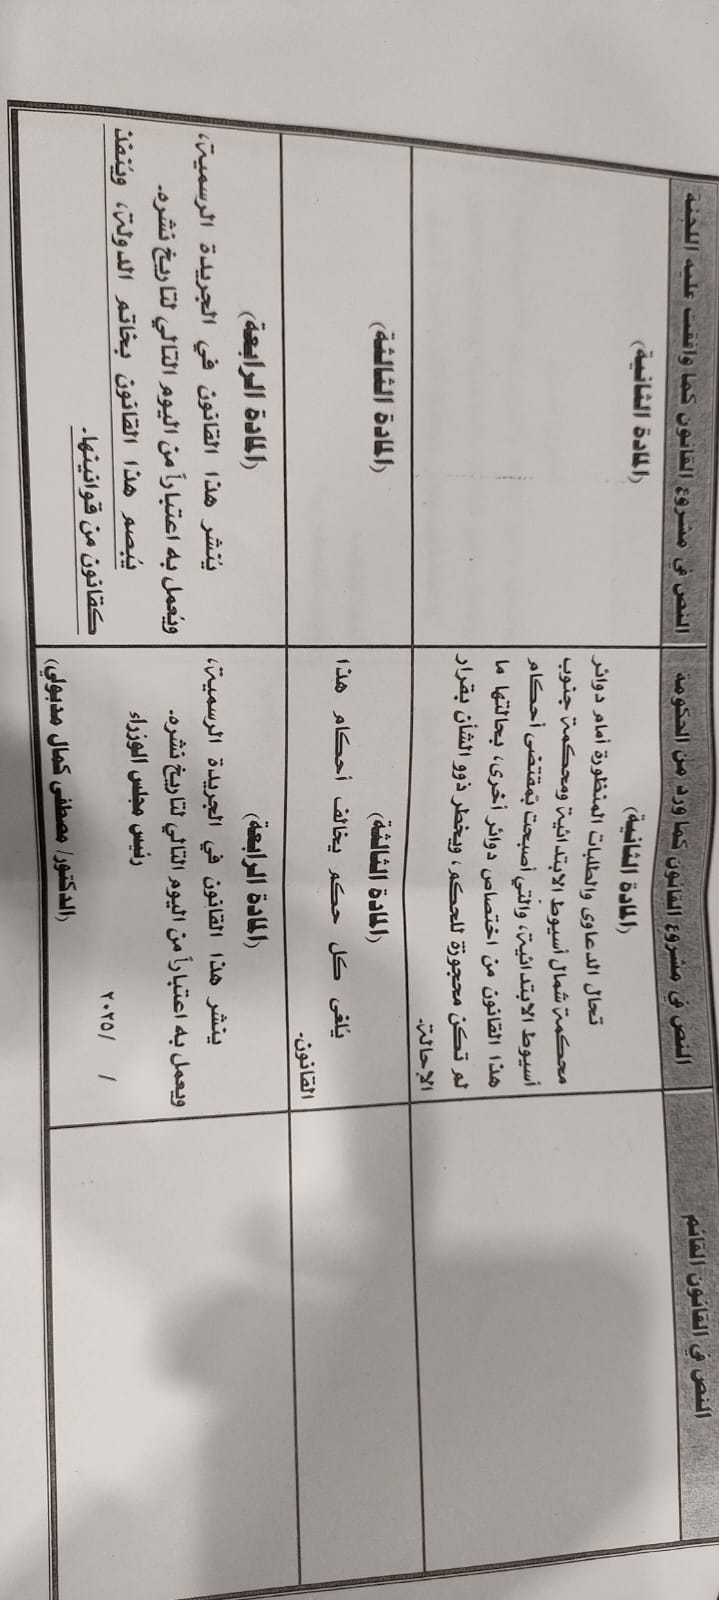 النص في القانون القائم
النص في مشروع القانون كما ورد من الحكومة
النص في مشروع القانون كما وافقت عليه اللجنة
(المادة الثانية)
تحال الدعاوى والطلبات المنظورة أمام دوائر
محكمة شمال أسيوط الابتدائية ومحكمة جنوب
أسيوط الابتدائية، والتي أصبحت بمقتضى أحكام
هذا القانون من اختصاص دوائر أخرى، بحالتها ما
لم تكن محجوزة للحكم، ويخطر ذوو الشأن بقرار
الإحالة.
(المادة الثانية)
(المادة الثالثة)
يُلغى كل حكم يخالف أحكام هذا
القانون.
(المادة الثالثة)
(المادة الرابعة)
ينشر هذا القانون في الجريدة الرسمية،
ويعمل به اعتباراً من اليوم التالي لتاريخ نشره.
رئيس مجلس الوزراء
/ /٢٠٢٥
(الدكتور/ مصطفى كمال مدبولي)
(المادة الرابعة)
يُنشر هذا القانون في الجريدة الرسمية،
ويُعمل به اعتباراً من اليوم التالي لتاريخ نشره.
يُبصم هذا القانون بخاتم الدولة، ويُنفذ
كقانون من قوانينها.